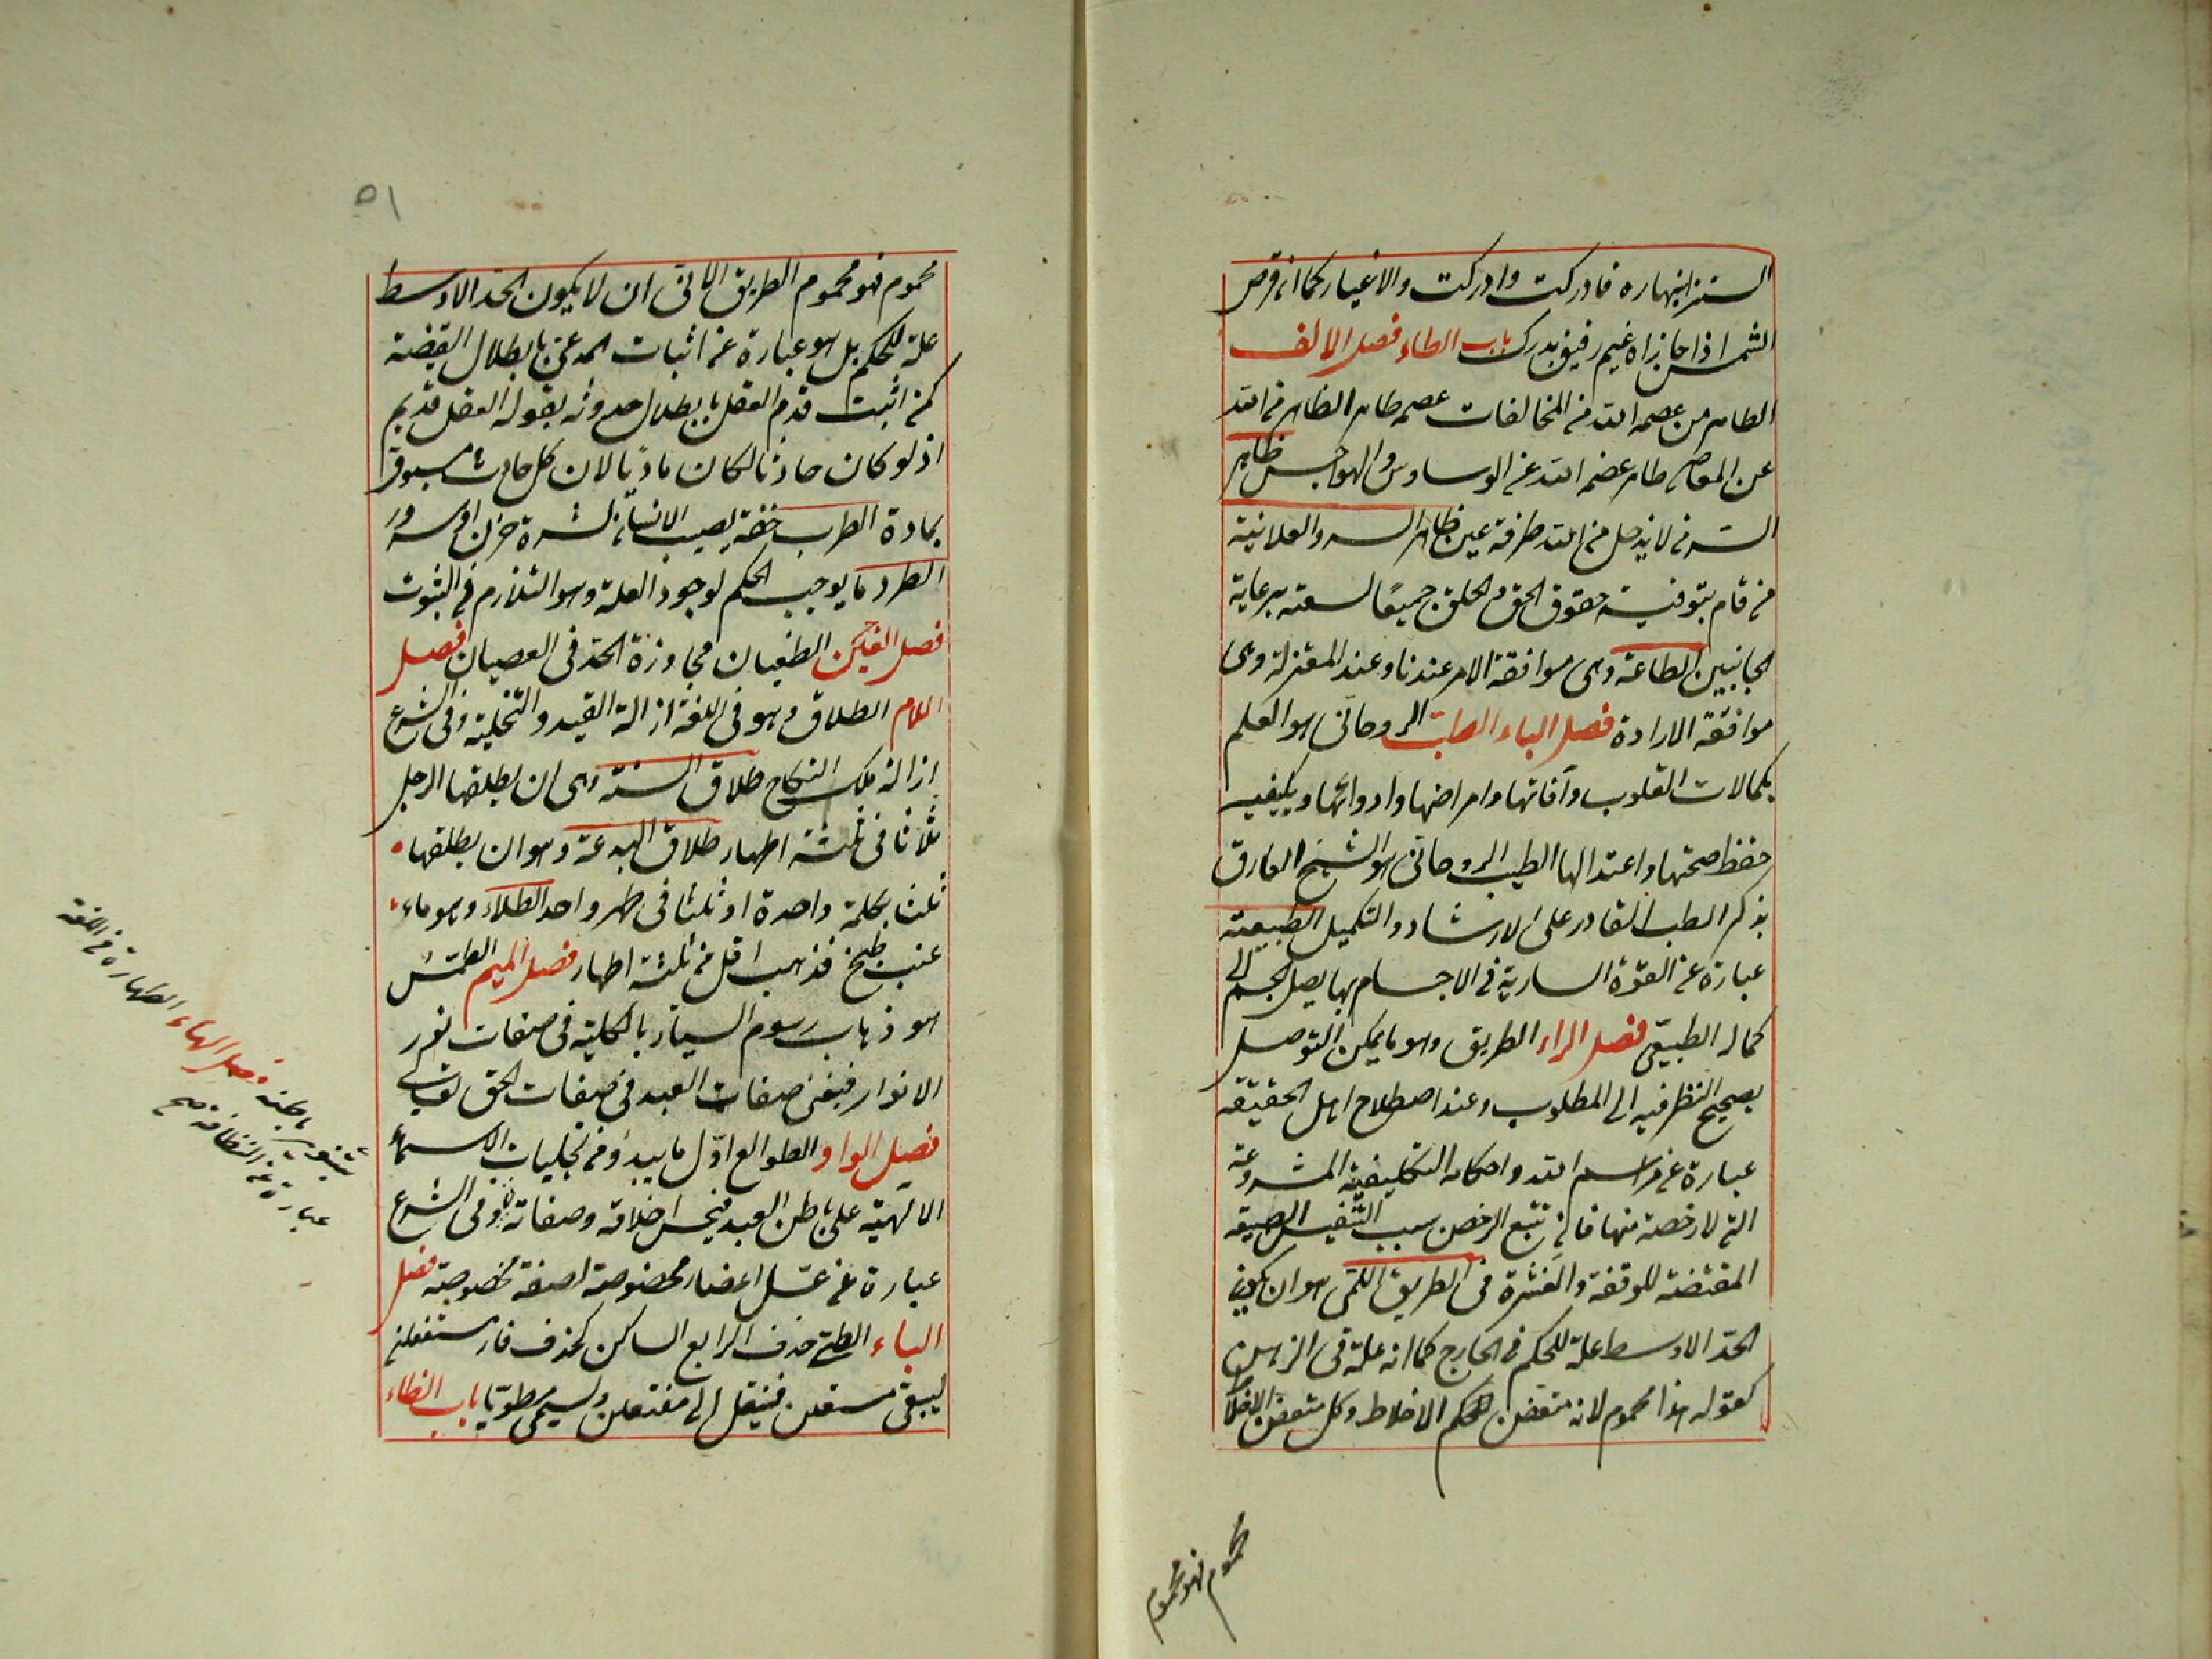 التنزل بنهاره فادركت وادركت والاغيار كما ان قرص
الشمس اذا حازاه غيم رقيق يدرك باب الطاء فصل الالف
الطاهر من عصمه الله من المخالفات عصمه طاهر الظاهر من الله
عن المعاصي طاهر عصمه الله عن الوساوس والهواجس طاهر
السر من لا يذهل من الله طرفة عين طاهر السر والعلانية
من قام بتوفية حقوق الحق والخلق جميعا لسعته برعاية
الجانبين الطاعة وهى موافقة الامر عندنا وعند المعتزلة وهى
موافقة الارادة فصل الباء الطب الروحانى هو العلم
بكمالات القلوب وآفاتها وامراضها وادوائها وبكيفية
حفظ صحتها واعتدالها الطبيب الروحانى هو الشيخ العارق
بذكر الطب القادر على الارشاد والتكميل الطبيعة
عبارة عن القوة السارية فى الاجسام بها يصل الجسم الى
كماله الطبيعى فصل الراء الطريق وهو ما يمكن التوصل
بصحيح النظر فيه الى المطلوب وعند اصطلاح اهل الحقيقة
عبارة عن مراسم الله واحكامه التكليفية المشروعة
التى لا رخصة منها فان تتبع الرخص سبب التنفيس الطبيعة
المقتضية للوقفة والفترة فى الطريق اللمى هو ان يكون
الحد الاوسط علة للحكم فى الخارج كما انه علة فى الذهن
كقوله هذا محموم لانه متعفن للحكم الاخلاط وكل متعفن الاخلاط
محموم فهو محموم
٥١
محموم فهو محموم الطريق الانى ان لا يكون الحد الاوسط
علة للحكم بل هو عبارة عن اثبات المدعى بابطال نقيضه
كمن اثبت قدم العقل بابطال حدوثه بقوله العقل قديم
اذ لو كان حادثا لكان ماديا لان كل حادث مسبوق
بمادة الطرب خفة يصيب الانسان لشدة حزن او سرور
الطرد ما يوجب الحكم لوجود العلة وهو التلازم فى الثبوت
فصل الغين الطغيان مجاوزة الحد فى العصيان فصل
اللام الطلاق وهو فى اللغة ازالة القيد والتخلية وفى الشرع
ازالة ملك النكاح طلاق السنة وهى ان يطلقها الرجل
ثلاثا فى ثلثة اطهار طلاق البدعة وهو ان يطلقها
ثلثا بكلمة واحدة او ثلثا فى طهر واحد الطلاء وهو ماء
عنب طبخ فذهب اقل من ثلثة اطهار فصل الميم الطمس
هو ذهاب رسوم السيار بالكلية فى صفات نور
الانوار فيفنى صفات العبد فى صفات الحق تعالى
فصل الواو الطوالع اول ما يبدو من تجليات الاسماء
الالهية على باطن العبد فيحسن اخلاقه وصفاته وفى الشرع
عبارة عن غسل اعضاء مخصوصة بصفة مخصوصة فصل
الياء الطى حذف الرابع الساكن كحذف فاء مستفعلن
ليبقى مستعلن فينقل الى مفتعلن ويسمى مطويا باب الظاء
بتنوير باطنه فصل الهاء الطهارة فى اللغة
عبارة عن النظافة صح